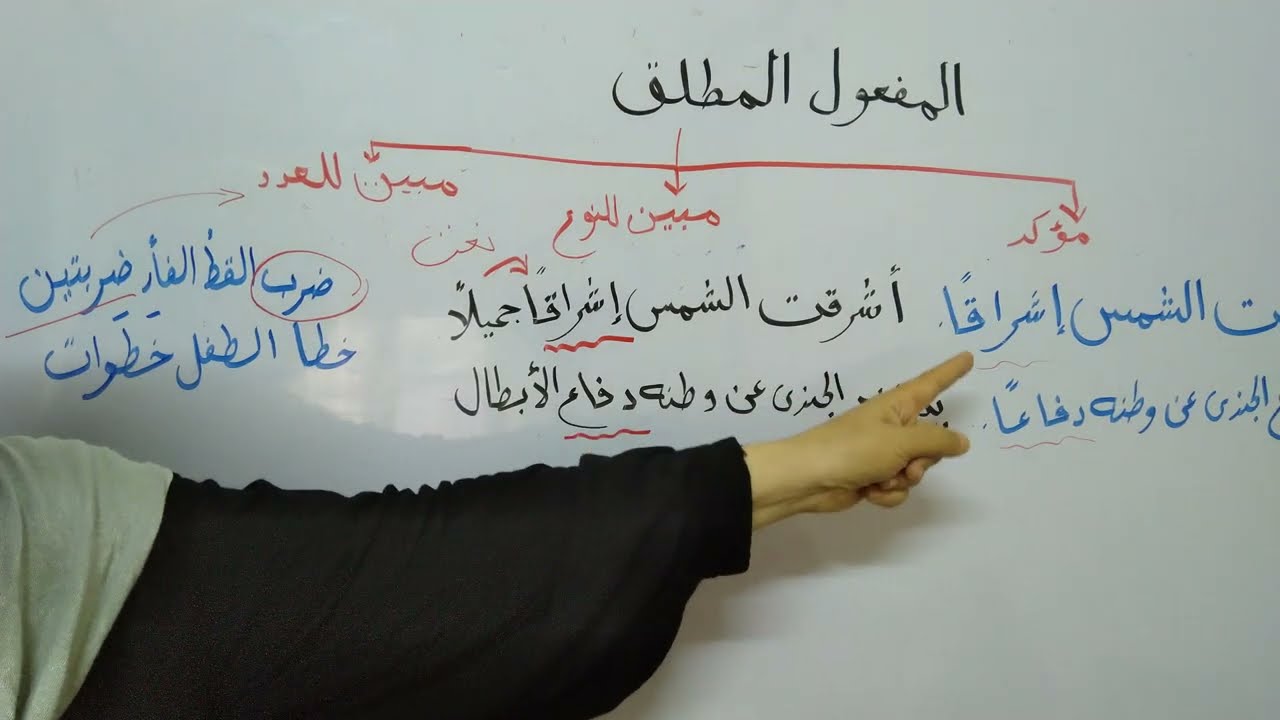 المفعول المطلق
مؤكد
مبين للنوع
مبين للعدد
ت الشمس إشراقًا.
ع الجندى عن وطنه دفاعًا.
نعت
أشرقت الشمس إشراقًا جميلًا
الجندى عن وطنه دفاع الأبطال
ضرب القط الفأر ضربتين
خطا الطفل خطوات